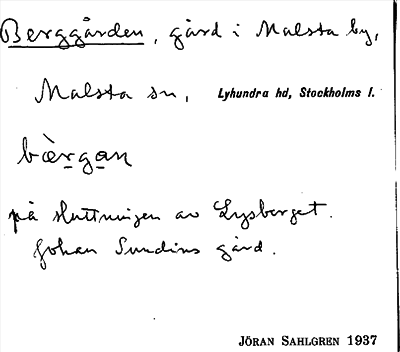 Berggården, gård i Malsta by,
Malsta sn, Lyhundra hd, Stockholms l.
bæ̀rgan
på sluttningen av Lysberget.
Johan Sundins gård.
JÖRAN SAHLGREN 1937